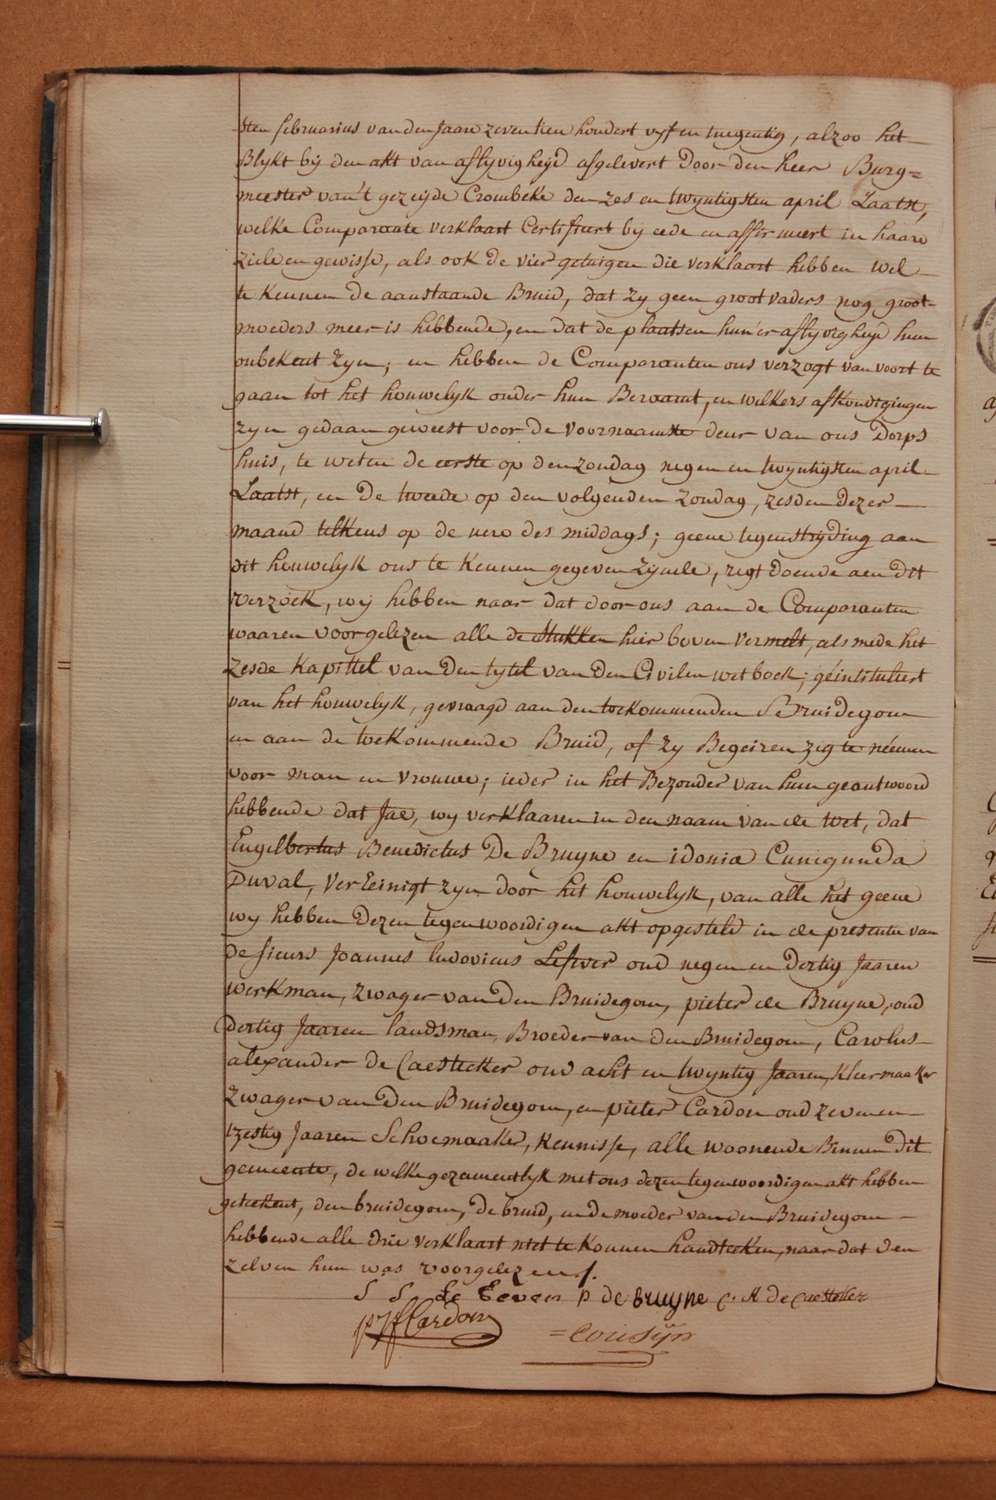 sten februarius van den Jaare zeventien hondert vyf en tnegentig, alzoo het
Blykt bij den akt van aflyvigheyd afgelevert Door den heer Burg=
meester van't gezeijde Crombeke den zes en twyntigsten april Laatst,
welke Comparante verklaart Certifieert by eede en affirmeert in haare
ziele en gewisse, als ook de vier getuigen die verklaart hebben wel
te kennen De aanstaande Bruid, dat zy geen grootvaders nog groot-
moeders meer is hebbende, en dat de plaatsen hun'er aflyvigheyd hun
onbekent zyn; en hebben de Comparanten ons verzogt van voort te
gaan tot het houwelyk onder hun Beraamt, en welkers afkondigingen
zyn gedaan geweest voor de voornaamste deur van ons Dorps
huis, te weten de eerste op den zondag negen en twyntigsten april
Laatst, en De tweede op den volgenden zondag, zesden dezer
maand telkens op de uere des middags; geene tegenstrijding aan
dit houwelyk ons te kennen gegeven zijnde, regt doende aen dit
verzoek, wij hebben naar dat door ons aan de Comparanten
waaren voorgelezen alle de stukken hier boven vermelt, als mede het
zesde kapittel van den tytel van den Civilen wetboek; géintituleert
van het houwelyk, gevraagd aan den toekommenden Bruidegom
en aan de toekommende Bruid, of zy Begeiren zig te néemen
voor man en vrouwe; ieder in het Bezonder van hun geantwoord
hebbende dat Jae, wy verklaaren in den naam van de wet, dat
Engelbertus Benedictus De Bruyne en idonia Cunigunda
Duval, Vereinigt zyn door het houwelyk, van alle het geene
wy hebben Dezen tegenwoordigen akt opgesteld in de presentie van
de sieurs Joannes ludovicus Lefever oud negen en Dertig Jaaren
werkman, zwager van den Bruidegom, pieter de Bruyne, oud
dertig Jaaren landsman, Broeder van den Bruidegom, Carolus
alexander de Caestecker oud acht en twyntig Jaaren, kleermaaker
zwager van Den Bruidegom, en pieter Cardon oud zeven en
tzestig Jaaren Schoemaaker, kennisse, alle woonende Binnen Dit
gemeente, de welke gezamentlyk met ons dezen tegenwoordigen akt hebben
geteekent, den bruidegom, De bruid, en de moeder van den Bruidegom
hebbende alle drie verklaart niet te konnen handteeken, naar dat den
zelven hun was voorgelezen.
p de bruyne C. A de Caestecker
Cardon
= Cousijn